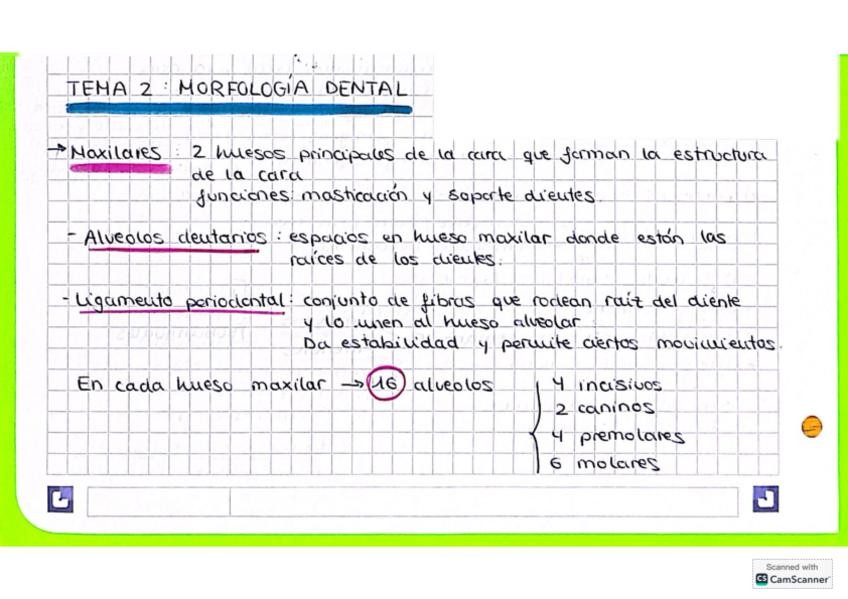 TEMA 2 : MORFOLOGÍA DENTAL
→ Maxilares : 2 huesos principales de la cara que forman la estructura
de la cara
funciones: masticación y soporte dientes.
- Alveolos dentarios : espacios en hueso maxilar donde están las
raíces de los dientes.
- Ligamento periodental : conjunto de fibras que rodean raíz del diente
y lo unen al hueso alveolar
Da estabilidad y permite ciertos movimientos.
En cada hueso maxilar → 16 alveolos
4 incisivos
2 caninos
4 premolares
6 molares
Scanned with
CS CamScanner